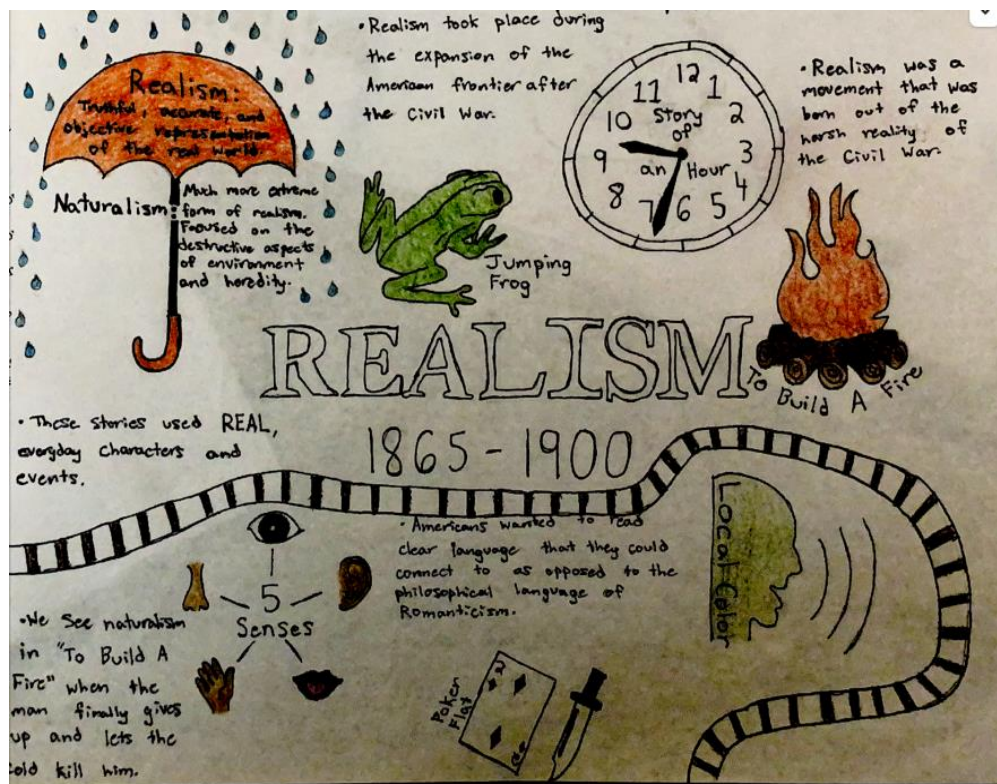 Realism:
Truthful, accurate, and
objective representation
of the real world.
Naturalism:
Much more extreme
form of realism.
Focused on the
destructive aspects
of environment
and heredity.
• Realism took place during
the expansion of the
American frontier after
the Civil War.
12
1
2
3
4
5
6
7
8
9
10
11
Story
of
an Hour
• Realism was a
movement that was
born out of the
harsh reality of
the Civil War.
Jumping
Frog
To Build A Fire
REALISM
1865-1900
• These stories used REAL,
everyday characters and
events.
• Americans wanted to read
clear language that they could
connect to as opposed to the
philosophical language of
Romanticism.
Local Color
5
Senses
• We See naturalism
in "To Build A
Fire" when the
man finally gives
up and lets the
cold kill him.
Poker
Flat
2